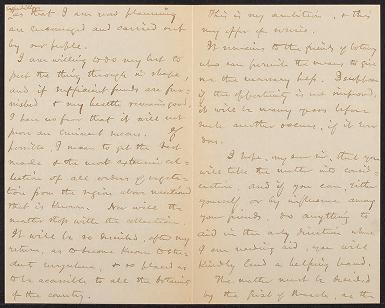 as that I am now planning
are encouraged and carried out
by our people.
I am willing to do my best to
put the thing through in shape,
and if sufficient funds are fur-
nished & my health remains good,
I have no fear that it will not
prove an eminent success. If
possible, I mean to get the best
made & the most extensive col-
lection of all orders of vegeta-
tion from the region above mentioned
that is known. Nor will the
matter stop with the collection
It will be so decided, after my
return, as to become known to stu-
dents everywhere, & so placed as
to be accessible to all the botanists
of the country.
This is my ambition, & this
my offer of service.
It remains to the friends of botany
who can furnish the means to give
me the necessary help.
if the opportunity is not improved,
it will be many years before
such another occurs, if it ever
does.
I hope, my dear sir, that you
will take the matter into consid-
eration, and if you can, either
yourself or by influence among
your friends, do anything to
aid in the only direction where
I am needing aid, you will
kindly lend a helping hand.
The matter must be decided
by the first of March, as the